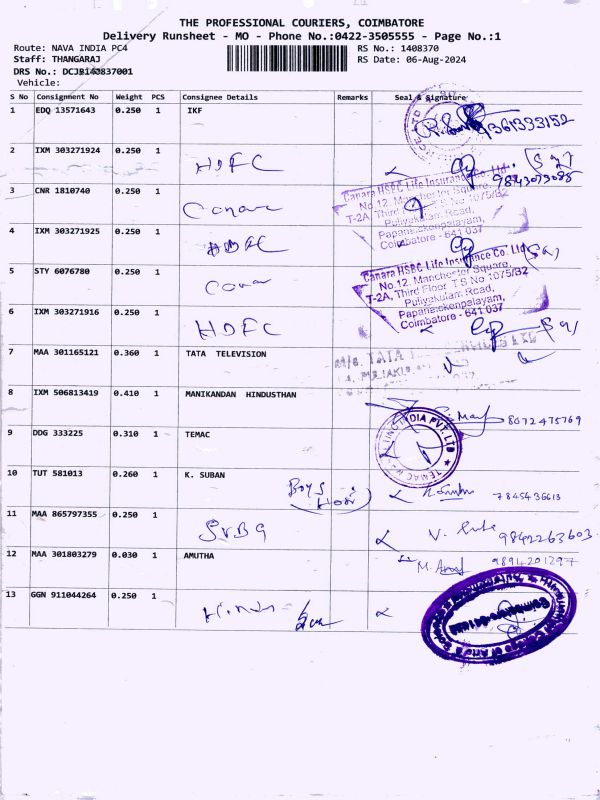 THE PROFESSIONAL COURIERS, COIMBATORE
Delivery Runsheet - MO - Phone No.:0422-3505555 - Page No.:1
Route: NAVA INDIA PC4 RS No.: 1408370
Staff: THANGARAJ RS Date: 06-Aug-2024
DRS No.: DCJB140837001
Vehicle:
S No Consignment No Weight PCS Consignee Details Remarks Seal & Signature
1 EDQ 13571643 0.250 1 IKF 9361333152
2 IXM 303271924 0.250 1 HDFC 9843073088
3 CNR 1810740 0.250 1 Canara
Canara HSBC Life Insurance Co. Ltd
No.12, Manchester Square,
T-2A, Third Floor T S No 1075/B2
Puliyakulam Road,
Papanaickenpalayam,
Coimbatore - 641 037
4 IXM 303271925 0.250 1 HDFC
5 STY 6076780 0.250 1 Canara
Canara HSBC Life Insurance Co. Ltd
No.12, Manchester Square,
T-2A, Third Floor T S No 1075/B2
Puliyakulam Road,
Papanaickenpalayam,
Coimbatore - 641 037
6 IXM 303271916 0.250 1 HDFC
7 MAA 301165121 0.360 1 TATA TELEVISION
M/s. TATA
8 IXM 506813419 0.410 1 MANIKANDAN HINDUSTHAN 8072475769
9 DDG 333225 0.310 1 TEMAC
INDIA PVT. LTD ★ TEMAC
10 TUT 581013 0.260 1 K. SUBAN Boys 7845436613
11 MAA 865797355 0.250 1 9842263603
12 MAA 301803279 0.030 1 AMUTHA 9894201297
13 GGN 911044264 0.250 1